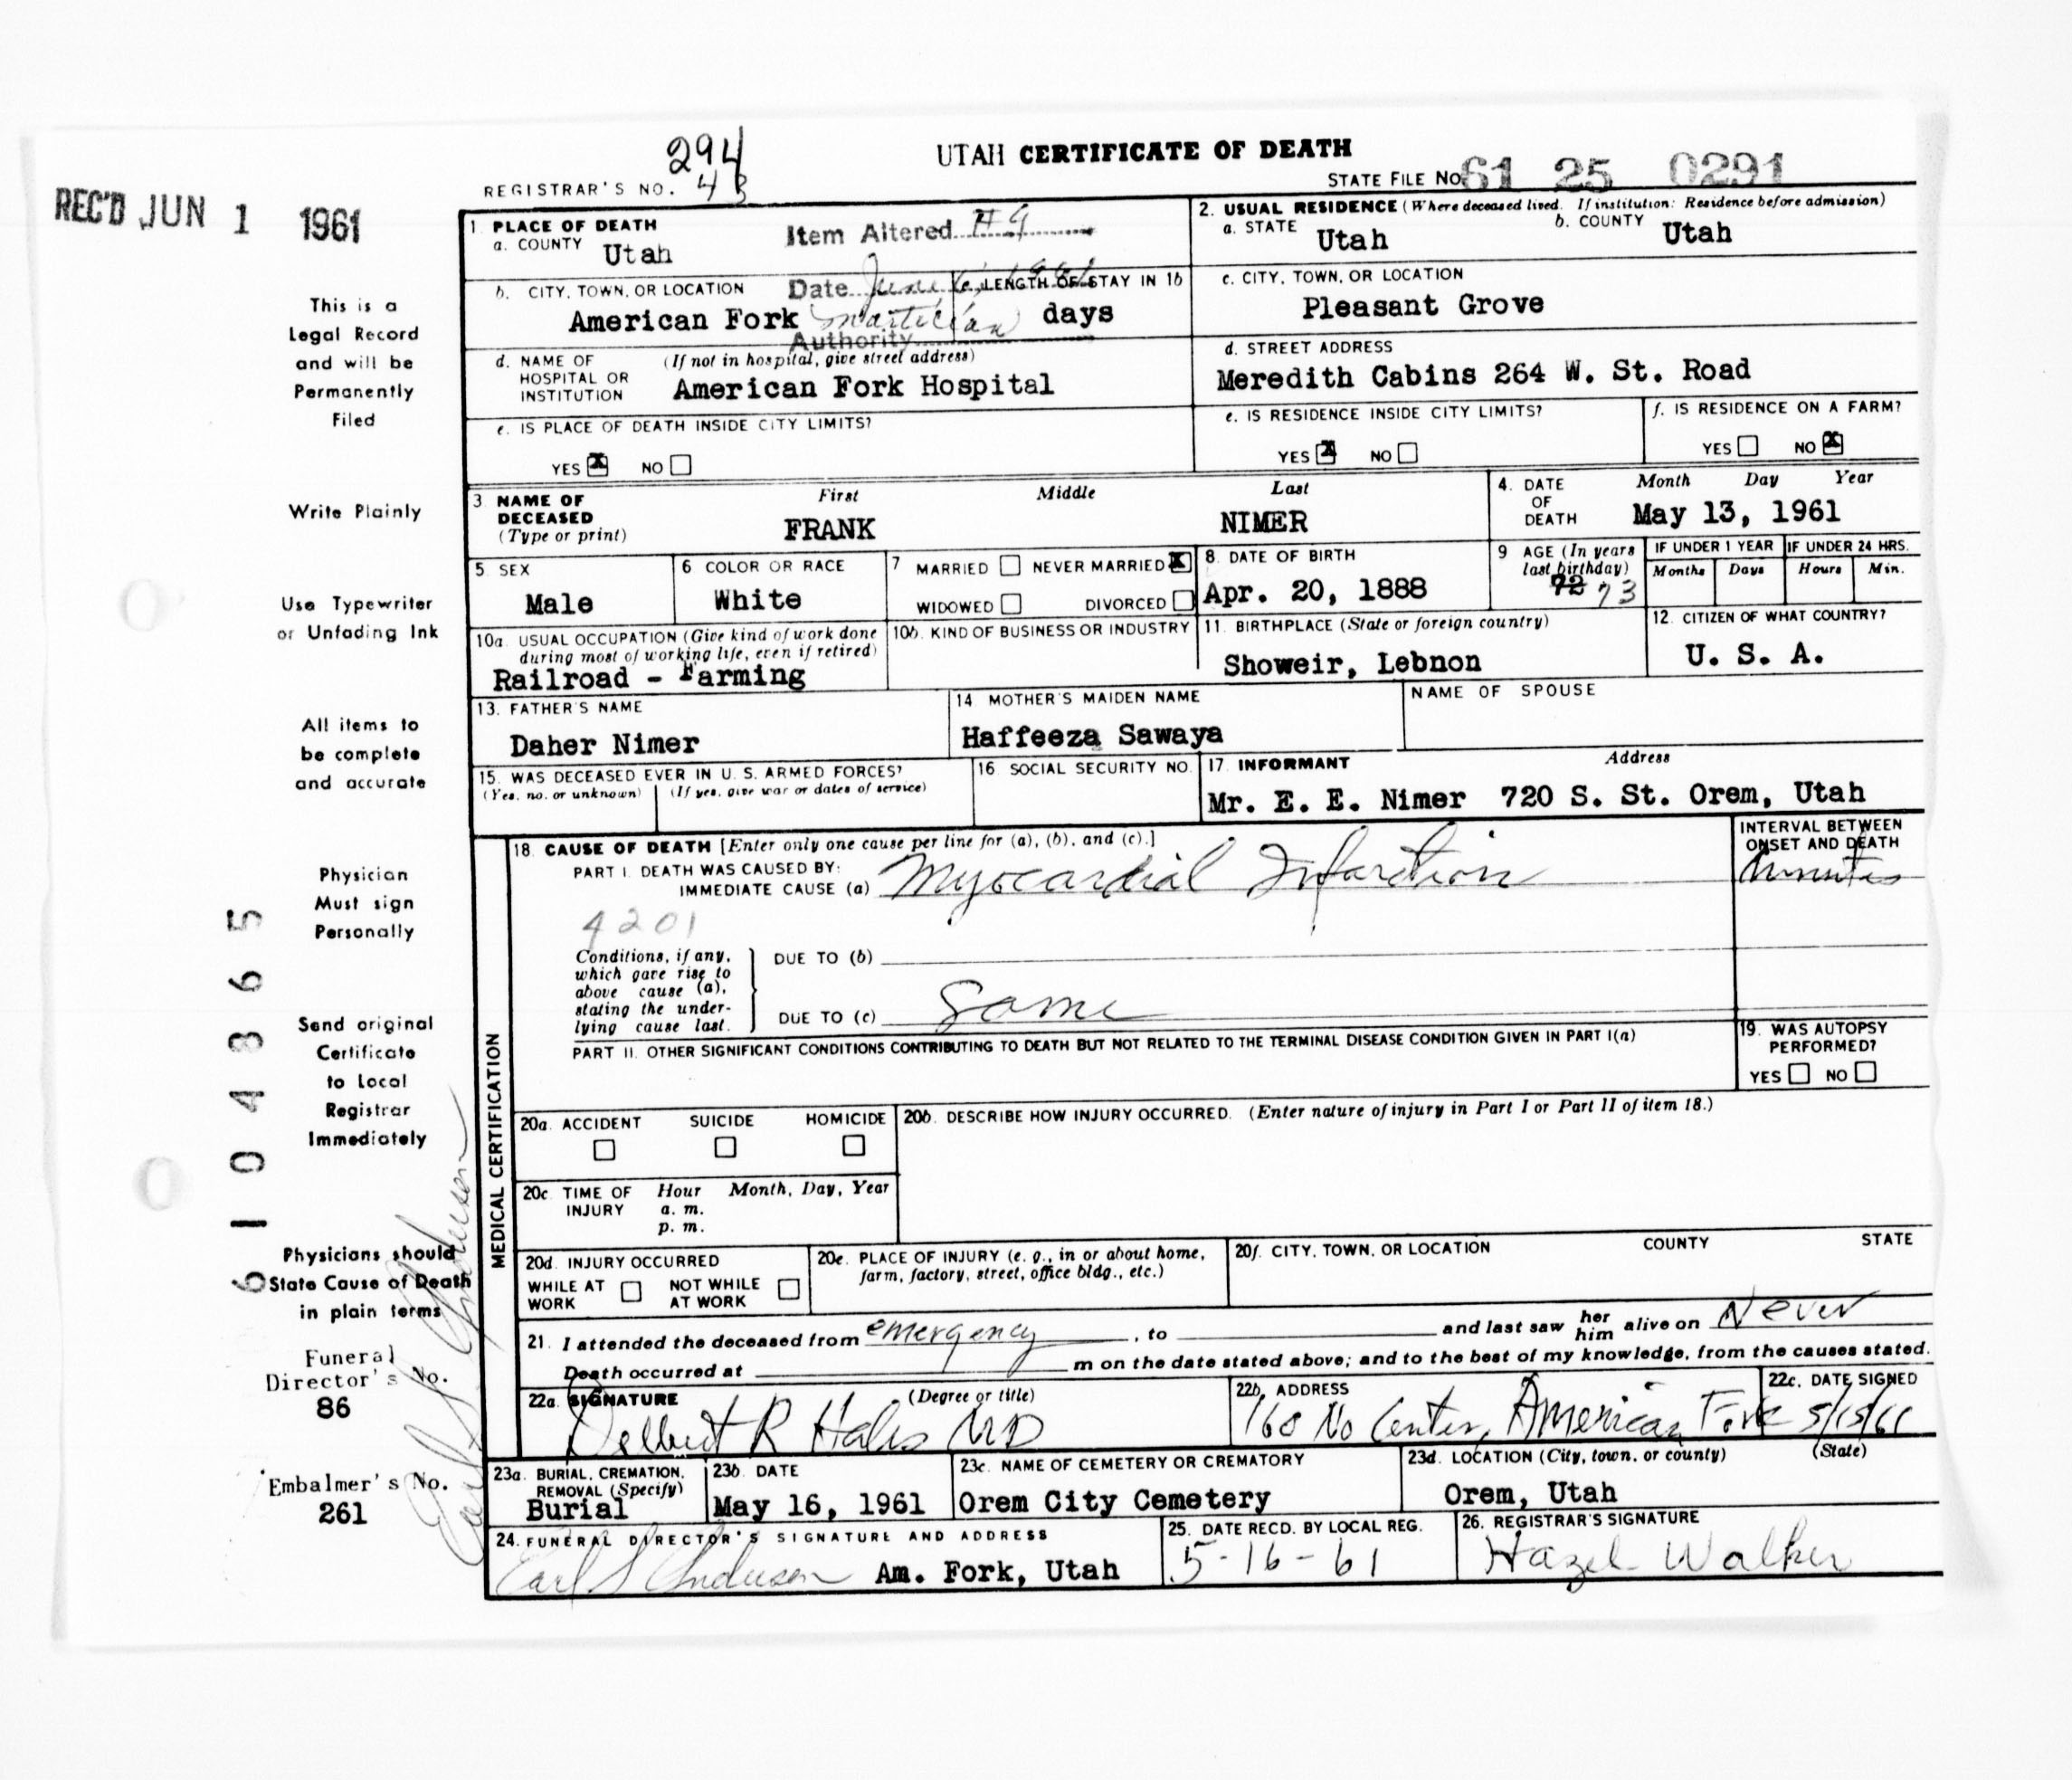 UTAH CERTIFICATE OF DEATH
294
REGISTRAR'S NO. 43
STATE FILE NO. 61 25 0291
REC'D JUN 1 1961
This is a
Legal Record
and will be
Permanently
Filed
Write Plainly
Use Typewriter
or Unfading Ink
All items to
be complete
and accurate
Physician
Must sign
Personally
Send original
Certificate
to Local
Registrar
Immediately
Physicians should
State Cause of Death
in plain terms
Funeral
Director's No.
86
Embalmer's No.
261
6104865
Earl S Anderson
1. PLACE OF DEATH
a. COUNTY Utah
Item Altered #9
Date June 6, 1961
mortician
Authority
b. CITY, TOWN, OR LOCATION American Fork
c. LENGTH OF STAY IN 1b days
d. NAME OF HOSPITAL OR INSTITUTION (If not in hospital, give street address) American Fork Hospital
e. IS PLACE OF DEATH INSIDE CITY LIMITS?
YES X NO
2. USUAL RESIDENCE (Where deceased lived. If institution: Residence before admission)
a. STATE Utah b. COUNTY Utah
c. CITY, TOWN, OR LOCATION
Pleasant Grove
d. STREET ADDRESS
Meredith Cabins 264 W. St. Road
e. IS RESIDENCE INSIDE CITY LIMITS?
YES X NO
f. IS RESIDENCE ON A FARM?
YES NO X
3 NAME OF DECEASED (Type or print) First Middle Last
FRANK NIMER
4. DATE OF DEATH Month Day Year
May 13, 1961
5 SEX
Male
6 COLOR OR RACE
White
7 MARRIED NEVER MARRIED X
WIDOWED DIVORCED
8. DATE OF BIRTH
Apr. 20, 1888
9 AGE (In years last birthday)
72 73
IF UNDER 1 YEAR Months Days
IF UNDER 24 HRS. Hours Min.
10a. USUAL OCCUPATION (Give kind of work done
during most of working life, even if retired)
Railroad - Farming
10b. KIND OF BUSINESS OR INDUSTRY
11. BIRTHPLACE (State or foreign country)
Showeir, Lebnon
12. CITIZEN OF WHAT COUNTRY?
U. S. A.
13. FATHER'S NAME
Daher Nimer
14 MOTHER'S MAIDEN NAME
Haffeeza Sawaya
NAME OF SPOUSE
15. WAS DECEASED EVER IN U. S. ARMED FORCES?
(Yes, no, or unknown) (If yes, give war or dates of service)
16. SOCIAL SECURITY NO.
17. INFORMANT Address
Mr. E. E. Nimer 720 S. St. Orem, Utah
MEDICAL CERTIFICATION
18. CAUSE OF DEATH [Enter only one cause per line for (a), (b), and (c).]
PART I. DEATH WAS CAUSED BY:
IMMEDIATE CAUSE (a) Myocardial Infarction
INTERVAL BETWEEN ONSET AND DEATH
minutes
4201
Conditions, if any,
which gave rise to
above cause (a),
stating the under-
lying cause last.
DUE TO (b)
DUE TO (c) Same
PART II. OTHER SIGNIFICANT CONDITIONS CONTRIBUTING TO DEATH BUT NOT RELATED TO THE TERMINAL DISEASE CONDITION GIVEN IN PART I(a)
19. WAS AUTOPSY PERFORMED?
YES NO
20a. ACCIDENT SUICIDE HOMICIDE
20b. DESCRIBE HOW INJURY OCCURRED. (Enter nature of injury in Part I or Part II of item 18.)
20c. TIME OF INJURY Hour Month, Day, Year
a. m.
p. m.
20d. INJURY OCCURRED
WHILE AT WORK NOT WHILE AT WORK
20e. PLACE OF INJURY (e. g., in or about home,
farm, factory, street, office bldg., etc.)
20f. CITY, TOWN, OR LOCATION COUNTY STATE
21. I attended the deceased from emergency , to and last saw her him alive on Never
Death occurred at m on the date stated above; and to the best of my knowledge, from the causes stated.
22a. SIGNATURE (Degree or title)
Delbert R Hales MD
22b. ADDRESS
160 No Center, American Fork
22c. DATE SIGNED
5/15/61
23a. BURIAL, CREMATION, REMOVAL (Specify)
Burial
23b. DATE
May 16, 1961
23c. NAME OF CEMETERY OR CREMATORY
Orem City Cemetery
23d. LOCATION (City, town, or county) (State)
Orem, Utah
24. FUNERAL DIRECTOR'S SIGNATURE AND ADDRESS
Earl S Anderson Am. Fork, Utah
25. DATE RECD. BY LOCAL REG.
5-16-61
26. REGISTRAR'S SIGNATURE
Hazel Walker